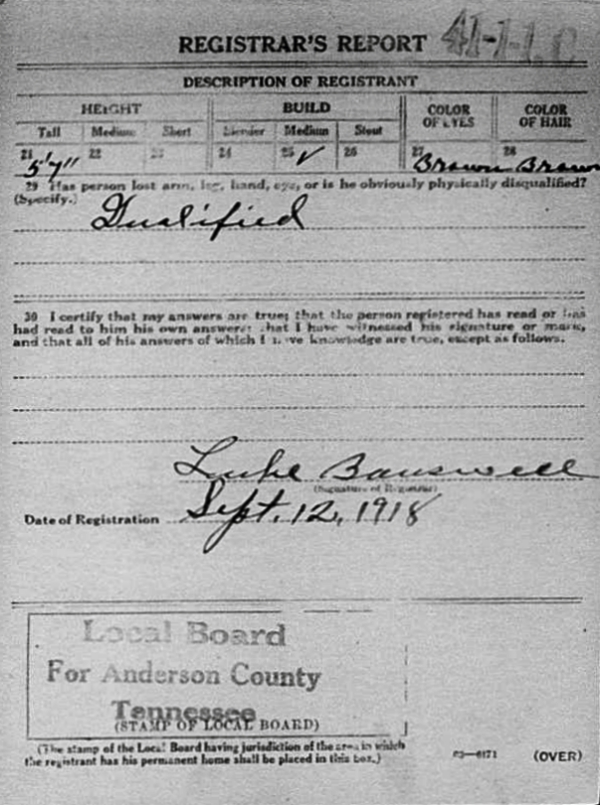 REGISTRAR'S REPORT 41-1-1 C
DESCRIPTION OF REGISTRANT
HEIGHT BUILD COLOR OF EYES COLOR OF HAIR
Tall Medium Short Slender Medium Stout
21 22 23 24 25 26 27 28
5'7" ✓ Brown Brown
29 Has person lost arm, leg, hand, eye, or is he obviously physically disqualified?
(Specify.)
Qualified
30 I certify that my answers are true; that the person registered has read or has
had read to him his own answers; that I have witnessed his signature or mark,
and that all of his answers of which I have knowledge are true, except as follows.
Luke
(Signature of Registrar)
Date of Registration Sept. 12, 1918
Local Board
For Anderson County
Tennessee
(STAMP OF LOCAL BOARD)
(The stamp of the Local Board having jurisdiction of the area in which
the registrant has his permanent home shall be placed in this box.)
03—6171 (OVER)